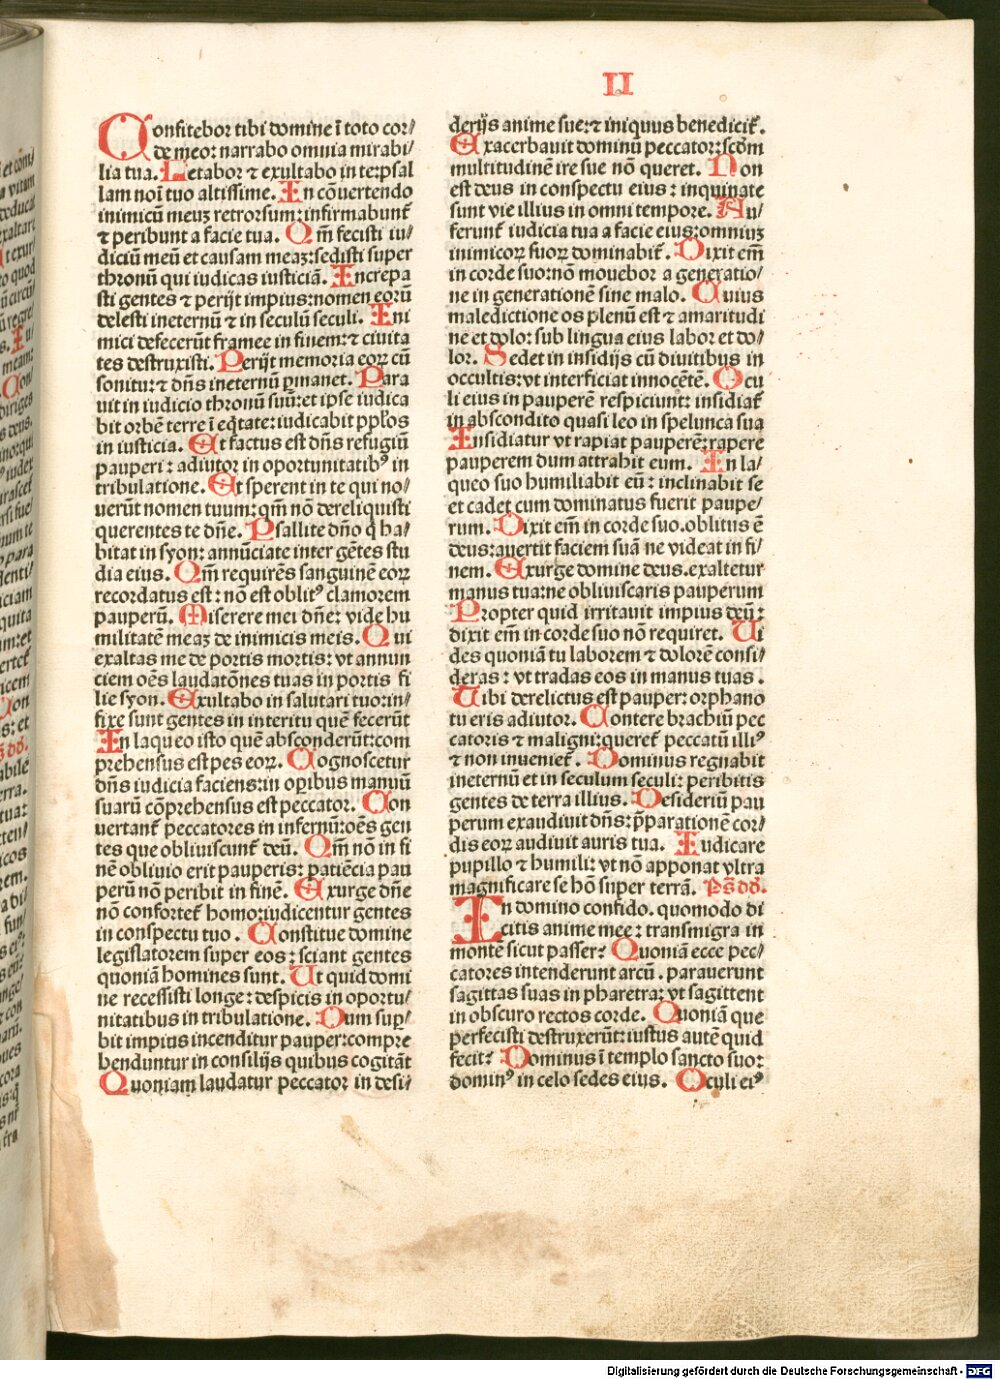 II
Confitebor tibi domine ī toto cor/
de meo: narrabo omnia mirabi/
lia tua. Letabor ⁊ exultabo in te: psal
lam noi tuo altissime. In cōuertendo
inimicū meuꝫ retrorsum: infirmabunt᷑
⁊ peribunt a facie tua. Qm̄ fecisti iu/
diciū meū et causam meaꝫ: sedisti super
thronū qui iudicas iusticiā. Increpa
sti gentes ⁊ perijt impius: nomen eorū
delesti ineternū ⁊ in seculū seculi. Ini
mici defecerūt framee in finem: ⁊ ciuita
tes destruxisti. Perijt memoria eoꝝ cū
sonitu: ⁊ dn̄s ineternū ꝑmanet. Para
uit in iudicio thronū suū: et ipse iudica
bit orbē terre ī eq̄tate: iudicabit pp̄los
in iusticia. Et factus est dn̄s refugiū
pauperi: adiutor in oportunitatibꝰ in
tribulatione. Et sperent in te qui no/
uerūt nomen tuum: qm̄ nō dereliquisti
querentes te dn̄e. Psallite dn̄o q̇ ha/
bitat in syon: annūciate inter gētes stu
dia eius. Qm̄ requirēs sanguinē eoꝝ
recordatus est: nō est oblitꝰ clamorem
pauperū. Miserere mei dn̄e: vide hu
militatē meaꝫ de inimicis meis. Qui
exaltas me de portis mortis: vt annun
ciem oēs laudatōnes tuas in portis fi
lie syon. Exultabo in salutari tuo: in/
fixe sunt gentes in interitu quē fecerūt
In laqueo isto quē absconderūt: com
prehensus est pes eoꝝ. Cognoscetur
dn̄s iudicia faciens: in oꝑibus manuū
suarū cōprehensus est peccator. Con
uertant᷑ peccatores in infernū: oēs gen
tes que obliuiscunt᷑ deū. Qm̄ nō in fi
nē obliuio erit pauperis: patiēcia pau
perū nō peribit in finē. Exurge dn̄e
nō confortet᷑ homo: iudicentur gentes
in conspectu tuo. Constitue domine
legislatorem super eos: sciant gentes
quoniā homines sunt. Ut quid domi
ne recessisti longe: despicis in oportu/
nitatibus in tribulatione. Dum suꝑ/
bit impius incenditur pauper: compre
henduntur in consilijs quibus cogitāt
Quoniam laudatur peccator in desi/
derijs anime sue: ⁊ iniquus benedicit᷑.
Exacerbauit dominū peccator: scd̄m
multitudinē ire sue nō queret. Non
est deus in conspectu eius: inquinate
sunt vie illius in omni tempore. Au/
ferunt᷑ iudicia tua a facie eius: omniuꝫ
inimicoꝝ suoꝝ dominabit᷑. Dixit em̄
in corde suo: nō mouebor a generatio/
ne in generationē sine malo. Cuius
maledictione os plenū est ⁊ amaritudi
ne et dolo: sub lingua eius labor et do/
lor. Sedet in insidijs cū diuitibus in
occultis: vt interficiat innocētē. Ocu
li eius in pauperē respiciunt: insidiat᷑
in abscondito quasi leo in spelunca sua
Insidiatur vt rapiat pauperē: rapere
pauperem dum attrahit eum. In la/
queo suo humiliabit eū: inclinabit se
et cadet cum dominatus fuerit paupe/
rum. Dixit em̄ in corde suo. oblitus ē
deus: auertit faciem suā ne videat in fi/
nem. Exurge domine deus. exaltetur
manus tua: ne obliuiscaris pauperum
Propter quid irritauit impius deū:
dixit em̄ in corde suo nō requiret. Ui
des quoniā tu laborem ⁊ dolorē consi/
deras: vt tradas eos in manus tuas.
Tibi derelictus est pauper: orphano
tu eris adiutor. Contere brachiū pec
catoris ⁊ maligni: queret᷑ peccatū illiꝰ
⁊ non inueniet᷑. Dominus regnabit
ineternū et in seculum seculi: peribitis
gentes de terra illius. Desideriū pau
perum exaudiuit dn̄s: p̄parationē cor/
dis eoꝝ audiuit auris tua. Iudicare
pupillo ⁊ humili: vt nō apponat vltra
magnificare se hō super terrā. Ps̄ dd̄.
In domino confido. quomodo di
citis anime mee: transmigra in
montē sicut passer? Quoniā ecce pec/
catores intenderunt arcū. parauerunt
sagittas suas in pharetra: vt sagittent
in obscuro rectos corde. Quoniā que
perfecisti destruxerūt: iustus autē quid
fecit? Dominus ī templo sancto suo:
dominꝰ in celo sedes eius. Oculi eiꝰ
Digitalisierung gefördert durch die Deutsche Forschungsgemeinschaft - DFG